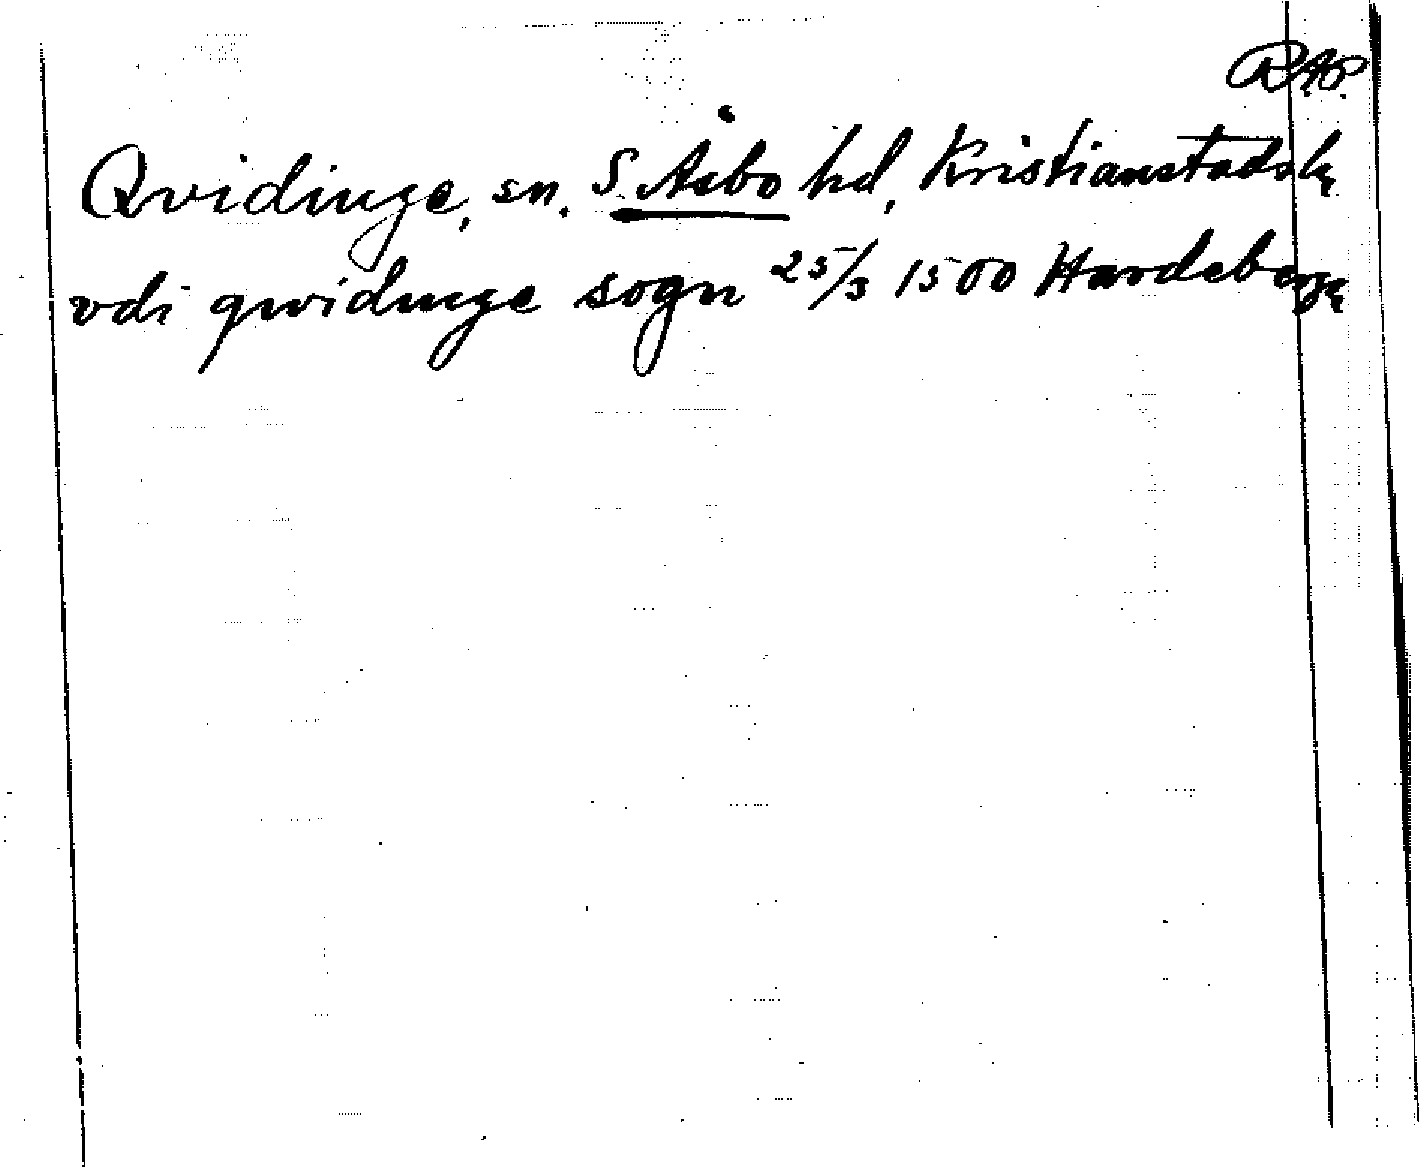 RAP.
Qvidinge, sn. S. Åsbo hd, Kristianstads l.
vdi qwidinge sogn 25/3 1500 Hardeberga